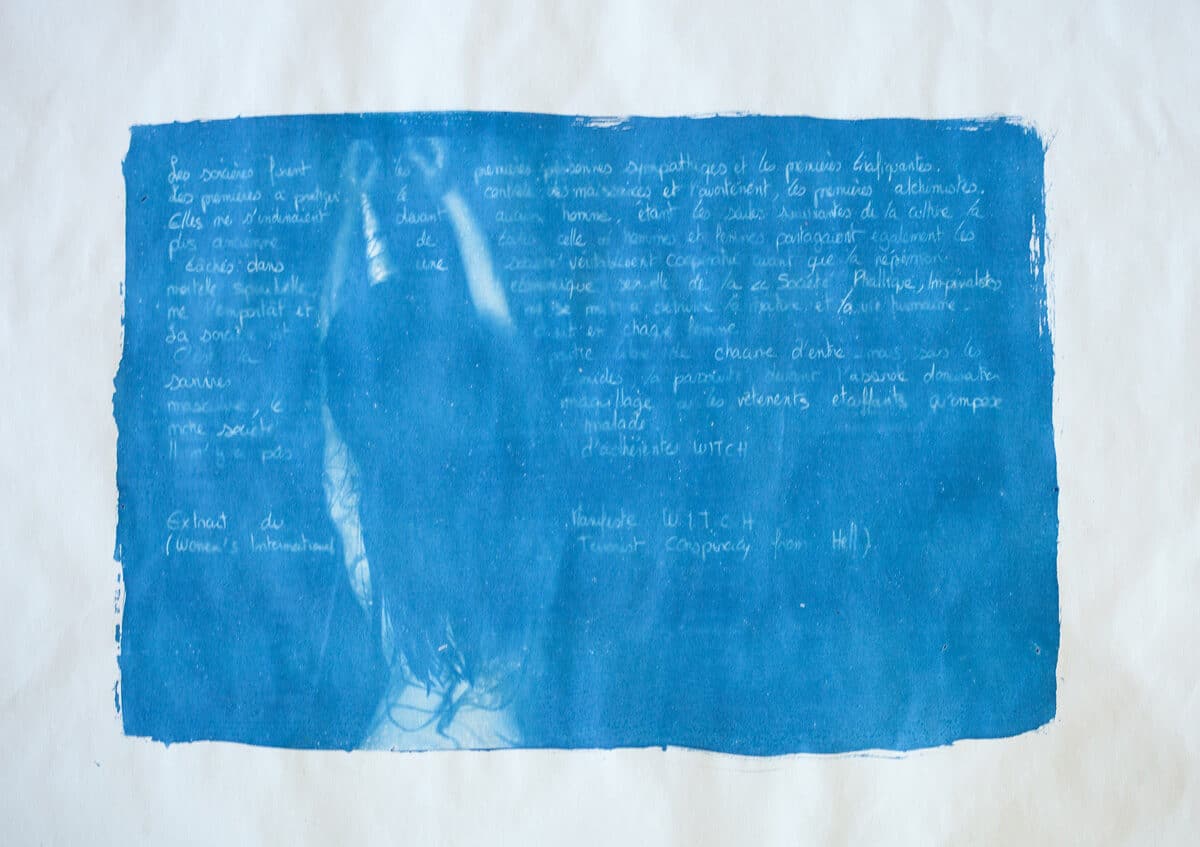 Les sorcières furent les premières personnes sympathiques et les premières trafiquantes.
Les premières à pratiquer le contrôle des naissances et l'avortement, les premières alchimistes.
Elles ne s'inclinaient devant aucun homme, étant les seules survivantes de la culture la
plus ancienne de celle où hommes et femmes partageaient également les
cachés dans une société véritablement coopérative avant que la répression
mortelle spirituelle économique sexuelle de la Société Phallique, Impérialiste
ne l'emportât et ne se mit à détruire la nature et la vie humaine.
La sorcière vit et chaque femme
C'est la chacune d'entre sous les
sourires la absurde domination
masculine, le maquillage ou les vêtements étouffants qu'impose
notre société malade
Il n'y a pas d'adhérentes WITCH
Extrait du Manifeste W.I.T.C.H
(Women's International Terrorist Conspiracy from Hell).